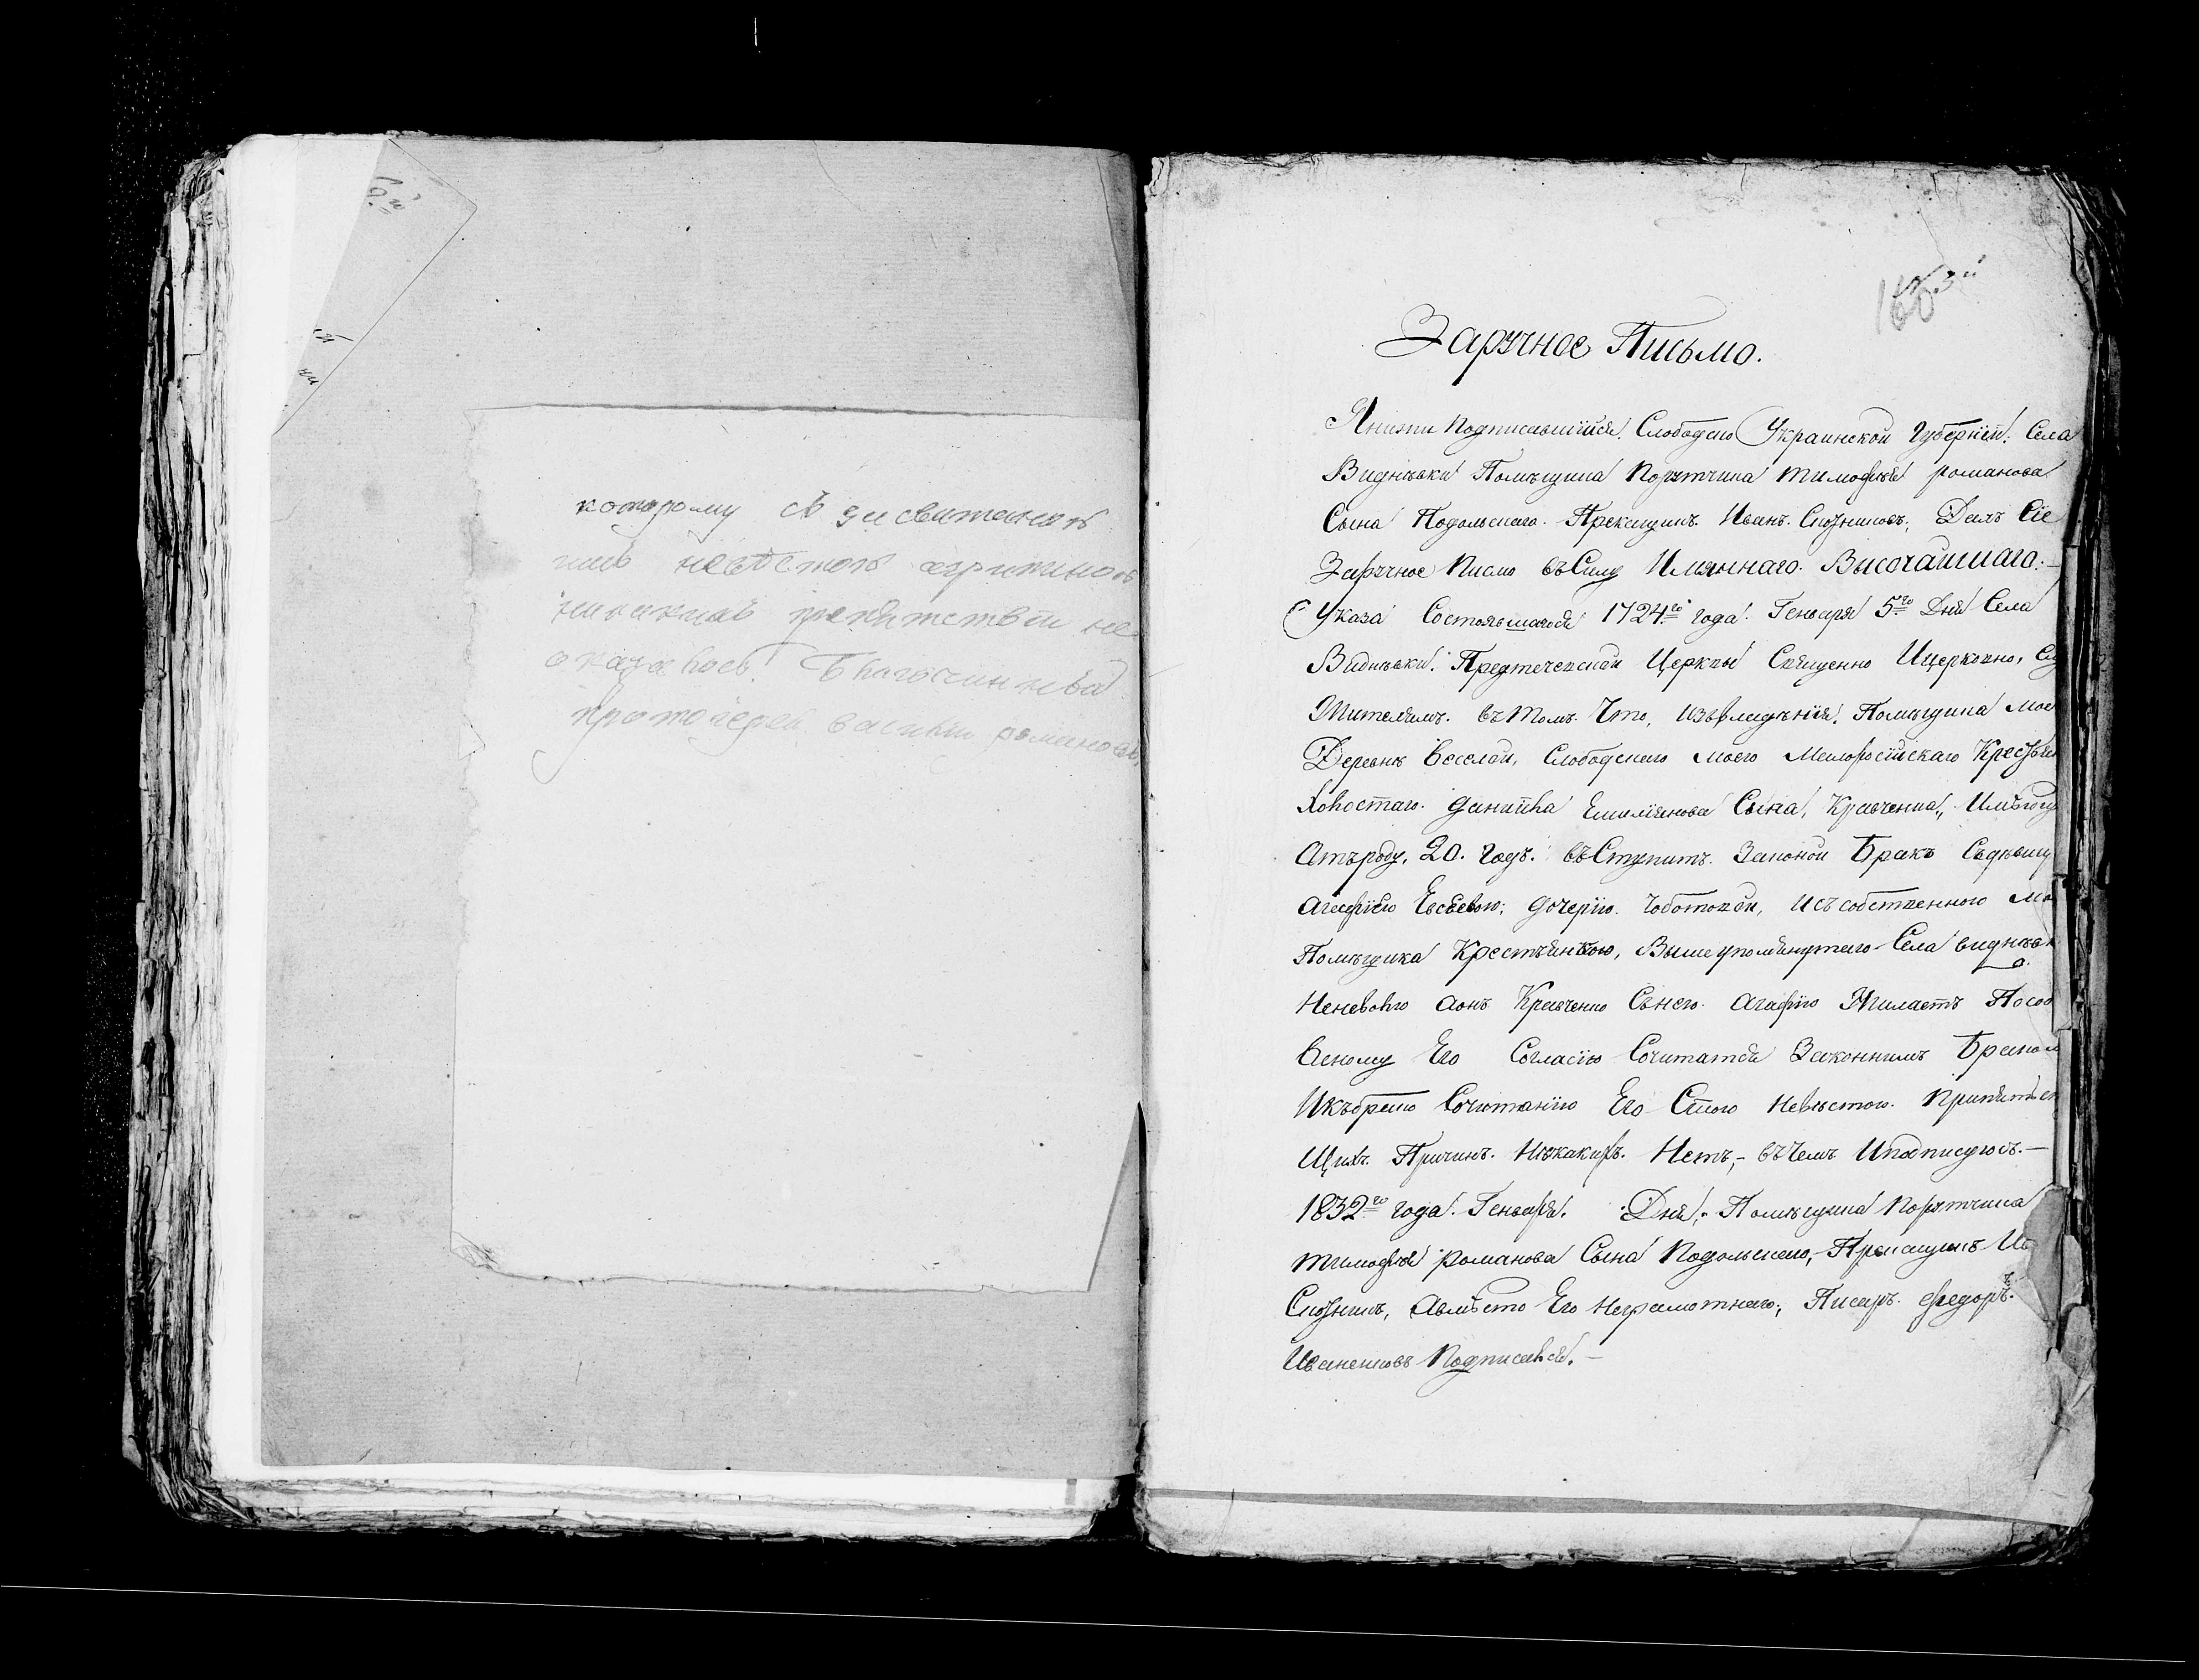 которому съ
невѣстою
никакихъ препятствій не
оказалось. Благочинный
протоіерей василій романовъ
160
Заручное Письмо.
Я ниже Подписавшійся, Слободско Украинской Губерніи: Села
Виднѣвки Помѣщика Порутчика тимофѣя романова
Сына Подольскаго. Прекащикъ. Иванъ. Далъ Сіе
Заручное Писмо въ Силу Имяннаго. Височайшаго:
Указа Состоявшагося 1724го года. Генваря 5го Дня Села
Виднѣвки. Предтеческой Церкви Священно Ицерковно, Слу
Жителямъ. въ Томъ. Что, изъ владѣнія. Помѣщика мое
Деревнѣ Веселой, Слободскаго моего Малоросійскаго Крестьян
Холостаго. Даниила Емилянова Сина, Кравченка, Имѣющ
Атъ роду. 20. Годъ. въ Ступить. Законой Бракъ Съ дѣвиц
Агафіею Евсѣевою; Дочерію. Чоботовой, Исъ собственного мо
Помѣщика Крестьянкою, Выше упомянутаго Села виднѣвк
Неневолю Аонъ Кравченко Сънею. Агафію Жилаетъ Посоо
Веному Его Согласію Сочитатся Законнимъ Браком
Икъ брако Сочитанію Его Стою Невѣстою. Припятст
Щихъ. Причинъ. Никакихъ. Нетъ,- въ Чемъ Иподписуюсъ.-
1832го года. Генваря. Дня, Помѣщика Порутчика
тимофѣя романова Сына Подольскаго, Прикащикъ Ив
Авмѣсто Его Неграмотнаго, Писарь. Федоръ.
Иваненковъ Подписался.-